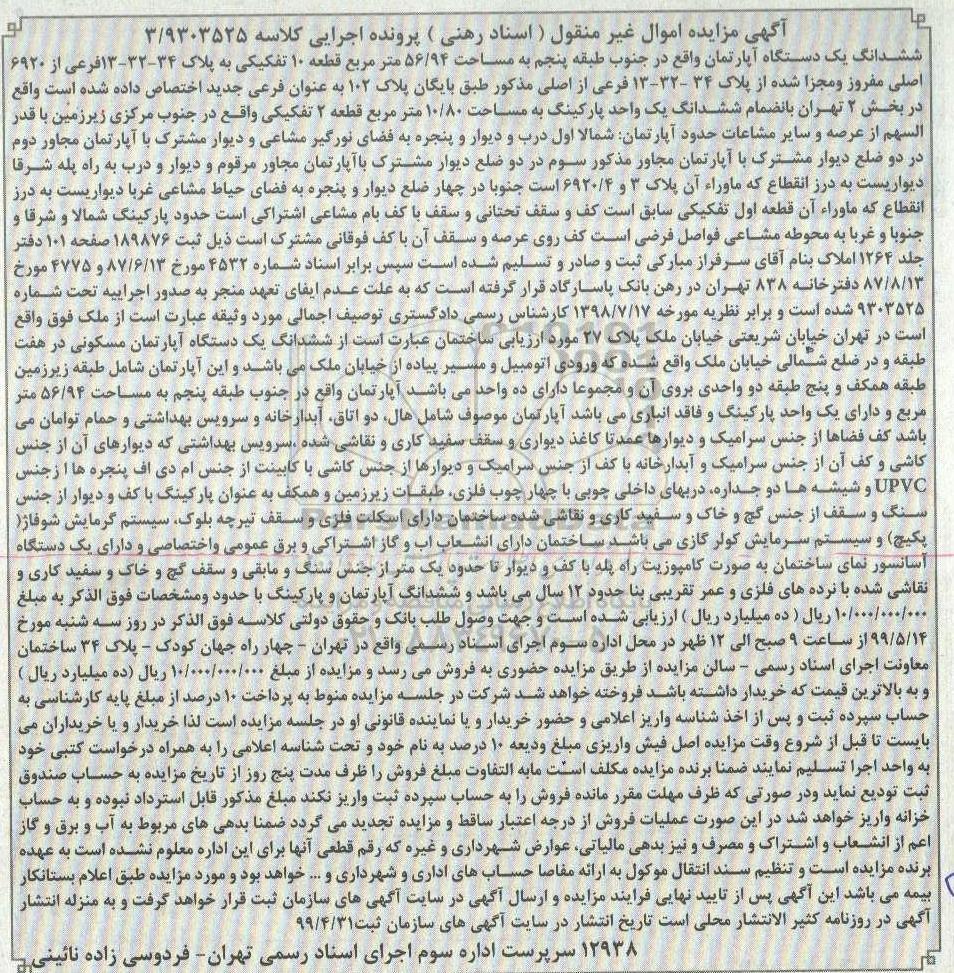 آگهی مزایده اموال غیر منقول ( اسناد رهنی ) پرونده اجرایی کلاسه ۳/۹۳۰۳۵۲۵
ششدانگ یک دستگاه آپارتمان واقع در جنوب طبقه پنجم به مساحت ۵۶/۹۴ متر مربع قطعه ۱۰ تفکیکی به پلاک ۳۴-۳۲-۱۳فرعی از ۶۹۲۰
اصلی مفروز ومجزا شده از پلاک ۳۴ -۳۲-۱۳ فرعی از اصلی مذکور طبق بایگان پلاک ۱۰۲ به عنوان فرعی جدید اختصاص داده شده است واقع
در بخش ۲ تهران بانضمام ششدانگ یک واحد پارکینگ به مساحت ۱۰/۸۰ متر مربع قطعه ۲ تفکیکی واقع در جنوب مرکزی زیرزمین با قدر
السهم از عرصه و سایر مشاعات حدود آپارتمان: شمالا اول درب و دیوار و پنجره به فضای نورگیر مشاعی و دیوار مشترک با آپارتمان مجاور دوم
در دو ضلع دیوار مشترک با آپارتمان مجاور مذکور سوم در دو ضلع دیوار مشترک باآپارتمان مجاور مرقوم و دیوار و درب به راه پله شرقا
دیواریست به درز انقطاع که ماوراء آن پلاک ۳ و ۶۹۲۰/۴ است جنوبا در چهار ضلع دیوار و پنجره به فضای حیاط مشاعی غربا دیواریست به درز
انقطاع که ماوراء آن قطعه اول تفکیکی سابق است کف و سقف تحتانی و سقف با کف بام مشاعی اشتراکی است حدود پارکینگ شمالا و شرقا و
جنوبا و غربا به محوطه مشاعی فواصل فرضی است کف روی عرصه و سقف آن با کف فوقانی مشترک است ذیل ثبت ۱۸۹۸۷۶ صفحه ۱۰۱ دفتر
جلد ۱۲۶۴ املاک بنام آقای سرفراز مبارکی ثبت و صادر و تسلیم شده است سپس برابر اسناد شماره ۴۵۳۲ مورخ ۸۷/۶/۱۳ و ۴۷۷۵ مورخ
۸۷/۸/۱۳ دفترخانه ۸۳۸ تهران در رهن بانک پاسارگاد قرار گرفته است که به علت عدم ایفای تعهد منجر به صدور اجراییه تحت شماره
۹۳۰۳۵۲۵ شده است و برابر نظریه مورخه ۱۳۹۸/۷/۱۷ کارشناس رسمی دادگستری توصیف اجمالی مورد وثیقه عبارت است از ملک فوق واقع
است در تهران خیابان شریعتی خیابان ملک پلاک ۲۷ مورد ارزیابی ساختمان عبارت است از ششدانگ یک دستگاه آپارتمان مسکونی در هفت
طبقه و در ضلع شمالی خیابان ملک واقع شده که ورودی اتومبیل و مسیر پیاده از خیابان ملک می باشد و این آپارتمان شامل طبقه زیرزمین
طبقه همکف و پنج طبقه دو واحدی بروی آن و مجموعا دارای ده واحد می باشد آپارتمان واقع در جنوب طبقه پنجم به مساحت ۵۶/۹۴ متر
مربع و دارای یک واحد پارکینگ و فاقد انباری می باشد آپارتمان موصوف شامل هال، دو اتاق، آبدارخانه و سرویس بهداشتی و حمام توامان می
باشد کف فضاها از جنس سرامیک و دیوارها عمدتا کاغذ دیواری و سقف سفید کاری و نقاشی شده ،سرویس بهداشتی که دیوارهای آن از جنس
کاشی و کف آن از جنس سرامیک و آبدارخانه با کف از جنس سرامیک و دیوارها از جنس کاشی با کابینت از جنس ام دی اف پنجره ها ا زجنس
UPVC و شیشه ها دو جداره، دربهای داخلی چوبی با چهار چوب فلزی، طبقات زیرزمین و همکف به عنوان پارکینگ با کف و دیوار از جنس
سنگ و سقف از جنس گچ و خاک و سفید کاری و نقاشی شده ساختمان دارای اسکلت فلزی و سقف تیرچه بلوک، سیستم گرمایش شوفاژ(
پکیج) و سیستم سرمایش کولر گازی می باشد ساختمان دارای انشعاب اب و گاز اشتراکی و برق عمومی واختصاصی و دارای یک دستگاه
آسانسور نمای ساختمان به صورت کامپوزیت راه پله با کف و دیوار تا حدود یک متر از جنس سنگ و مابقی و سقف گچ و خاک و سفید کاری و
نقاشی شده با نرده های فلزی و عمر تقریبی بنا حدود ۱۲ سال می باشد و ششدانگ آپارتمان و پارکینگ با حدود ومشخصات فوق الذکر به مبلغ
۱۰/۰۰۰/۰۰۰/۰۰۰ ریال ( ده میلیارد ریال ) ارزیابی شده است و جهت وصول طلب بانک و حقوق دولتی کلاسه فوق الذکر در روز سه شنبه مورخ
۹۹/۵/۱۴ از ساعت ۹ صبح الی ۱۲ ظهر در محل اداره سوم اجرای اسناد رسمی واقع در تهران - چهار راه جهان کودک - پلاک ۳۴ ساختمان
معاونت اجرای اسناد رسمی - سالن مزایده از طریق مزایده حضوری به فروش می رسد و مزایده از مبلغ ۱۰/۰۰۰/۰۰۰/۰۰۰ ریال (ده میلیارد ریال )
و به بالاترین قیمت که خریدار داشته باشد فروخته خواهد شد شرکت در جلسه مزایده منوط به پرداخت ۱۰ درصد از مبلغ پایه کارشناسی به
حساب سپرده ثبت و پس از اخذ شناسه واریز اعلامی و حضور خریدار و یا نماینده قانونی او در جلسه مزایده است لذا خریدار و یا خریداران می
بایست تا قبل از شروع وقت مزایده اصل فیش واریزی مبلغ ودیعه ۱۰ درصد به نام خود و تحت شناسه اعلامی را به همراه درخواست کتبی خود
به واحد اجرا تسلیم نمایند ضمنا برنده مزایده مکلف است مابه التفاوت مبلغ فروش را ظرف مدت پنج روز از تاریخ مزایده به حساب صندوق
ثبت تودیع نماید ودر صورتی که ظرف مهلت مقرر مانده فروش را به حساب سپرده ثبت واریز نکند مبلغ مذکور قابل استرداد نبوده و به حساب
خزانه واریز خواهد شد در این صورت عملیات فروش از درجه اعتبار ساقط و مزایده تجدید می گردد ضمنا بدهی های مربوط به آب و برق و گاز
اعم از انشعاب و اشتراک و مصرف و نیز بدهی مالیاتی، عوارض شهرداری و غیره که رقم قطعی آنها برای این اداره معلوم نشده است به عهده
برنده مزایده است و تنظیم سند انتقال موکول به ارائه مفاصا حساب های اداری و شهرداری و ... خواهد بود و مورد مزایده طبق اعلام بستانکار
بیمه می باشد این آگهی پس از تایید نهایی فرایند مزایده و ارسال آگهی در سایت آگهی های سازمان ثبت قرار خواهد گرفت و به منزله انتشار
آگهی در روزنامه کثیر الانتشار محلی است تاریخ انتشار در سایت آگهی های سازمان ثبت۹۹/۴/۳۱
۱۲۹۳۸ سرپرست اداره سوم اجرای اسناد رسمی تهران- فردوسی زاده نائینی